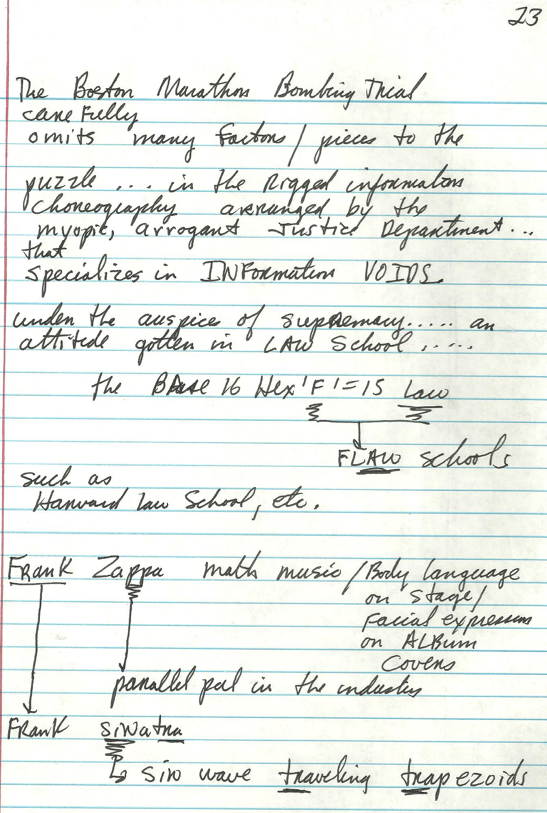 23
The Boston Marathon Bombing Trial
carefully
omits many factors / pieces to the
puzzle ... in the Rigged information
choreography arranged by the
myopic, arrogant Justice Department...
that
specializes in INFormation VOIDS
under the auspice of supremacy..... an
attitude gotten in LAW School .....
the BAse 16 Hex 'F' = 15 Law
FLAW schools
such as
Harvard Law School, etc.
FRanK Zappa math music / Body language
on stage /
Facial expression
on ALBum
Covers
parallel pal in the industry
FRanK siNatra
sin wave traveling trapezoids